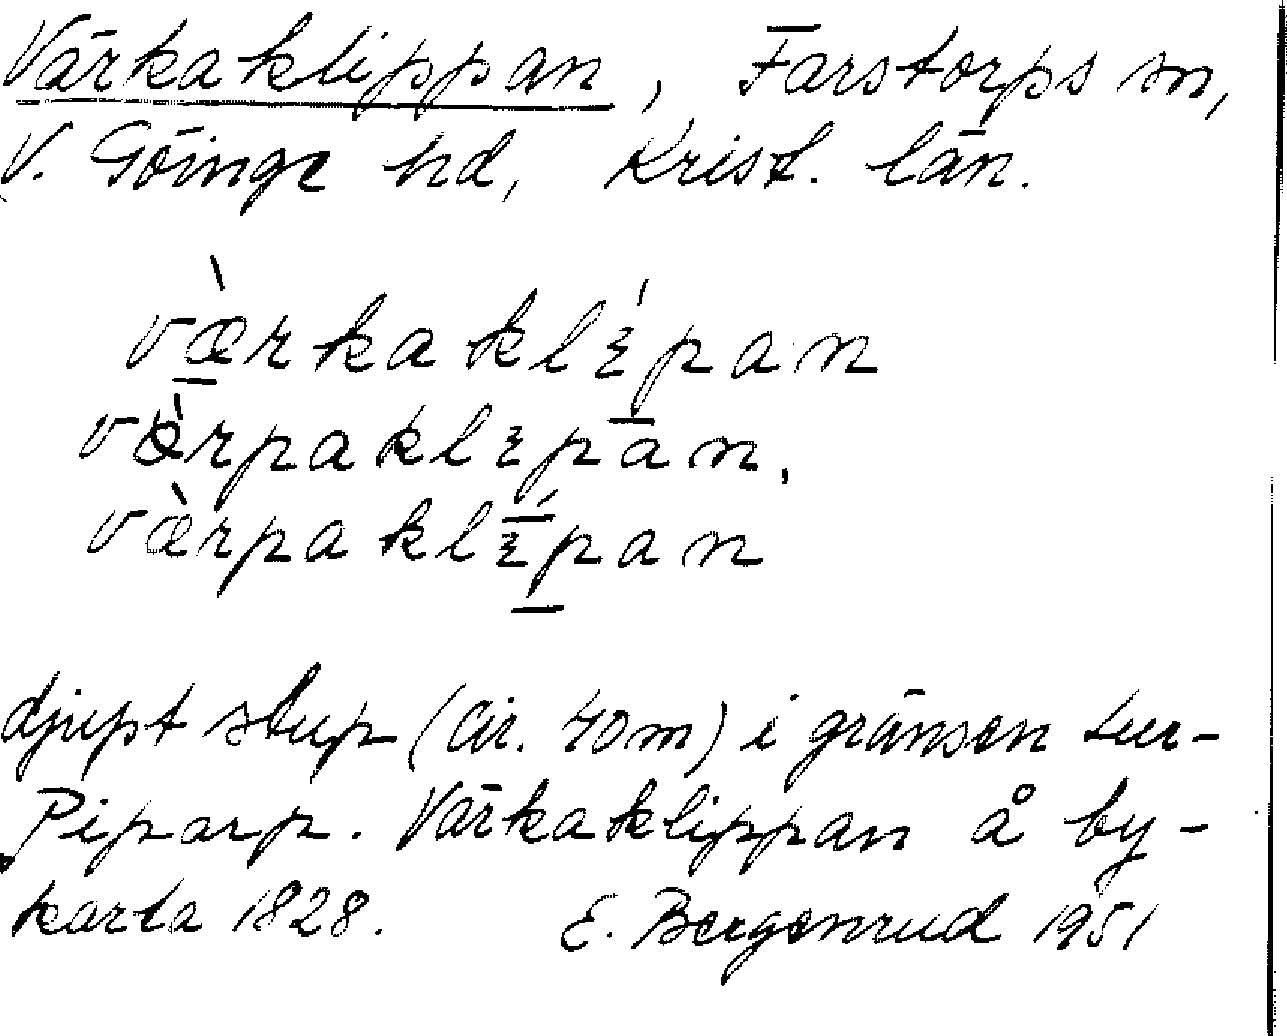 Värkaklippan, Farstorps sn,
V. Göinge hd, Krist. län.
værkaklɛ́pan
værpaklɛpan,
værpaklɛ́pan
djupt stup (cir. 40m) i gränsen tur-
Piparp. Värkaklippan å by-
karta 1828. E. Bergenrud 1951